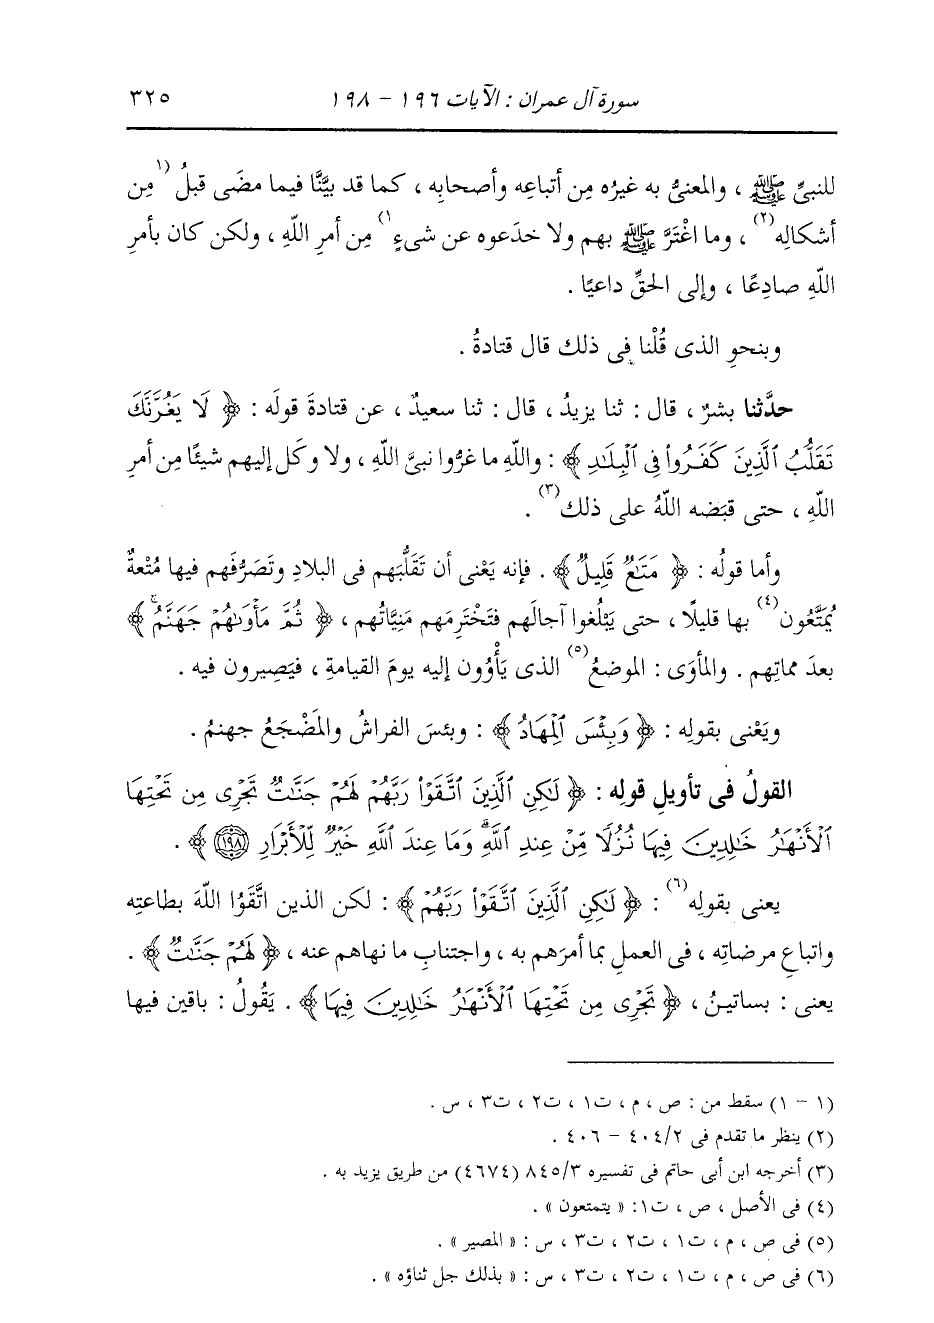 سورة آل عمران : الآيات ١٩٦ - ١٩٨ ٣٢٥
للنبىِّ ﷺ ، والمعنىُّ به غيرُه مِن أتباعِه وأصحابِه ، كما قد بيَّنَّا فيما مضَى قبلُ (١مِن
أشكالِه(٢) ، وما اغْتَرَّ ﷺ بهم ولا خدَعوه عن شىءٍ١) مِن أمرِ اللَّهِ ، ولكن كان بأمرِ
اللَّهِ صادِعًا ، وإلى الحقِّ داعيًا .
وبنحوِ الذى قُلْنا فى ذلك قال قتادةُ .
حدَّثنا بشرٌ ، قال : ثنا يزيدُ ، قال : ثنا سعيدٌ ، عن قتادةَ قولَه : ﴿ لَا يَغُرَّنَّكَ
تَقَلُّبُ ٱلَّذِينَ كَفَرُوا۟ فِى ٱلْبِلَـٰدِ ﴾ : واللَّهِ ما غرُّوا نبىَّ اللَّهِ ، ولا وكَل إليهم شيئًا مِن أمرِ
اللَّهِ ، حتى قبَضه اللَّهُ على ذلك(٣) .
وأما قولُه : ﴿ مَتَـٰعٌ قَلِيلٌ ﴾ . فإنه يَعْنى أن تَقَلُّبَهم فى البلادِ وتَصَرُّفَهم فيها مُتْعةٌ
يُمَتَّعُون(٤) بها قليلًا ، حتى يَبْلُغوا آجالَهم فتَخْتَرِمَهم مَنِيَّاتُهم ، ﴿ ثُمَّ مَأْوَىٰهُمْ جَهَنَّمُ ۚ ﴾
بعدَ مماتِهم . والمأوَى : الموضعُ(٥) الذى يَأْوُون إليه يومَ القيامةِ ، فيَصِيرون فيه .
ويَعْنى بقولِه : ﴿ وَبِئْسَ ٱلْمِهَادُ ﴾ : وبئسَ الفراشُ والمَضْجَعُ جهنمُ .
القولُ فى تأويلِ قولِه : ﴿ لَـٰكِنِ ٱلَّذِينَ ٱتَّقَوْا۟ رَبَّهُمْ لَهُمْ جَنَّـٰتٌ تَجْرِى مِن تَحْتِهَا
ٱلْأَنْهَـٰرُ خَـٰلِدِينَ فِيهَا نُزُلًا مِّنْ عِندِ ٱللَّهِ ۗ وَمَا عِندَ ٱللَّهِ خَيْرٌ لِّلْأَبْرَارِ ١٩٨ ﴾ .
يعنى بقولِه(٦) : ﴿ لَـٰكِنِ ٱلَّذِينَ ٱتَّقَوْا۟ رَبَّهُمْ ﴾ : لكن الذين اتَّقَوُا اللَّهَ بطاعتِه
واتباعِ مرضاتِه ، فى العملِ بما أمرَهم به ، واجتنابِ ما نهاهم عنه ، ﴿ لَهُمْ جَنَّـٰتٌ ﴾ .
يعنى : بساتينُ ، ﴿ تَجْرِى مِن تَحْتِهَا ٱلْأَنْهَـٰرُ خَـٰلِدِينَ فِيهَا ﴾ . يَقُولُ : باقين فيها
(١ - ١) سقط من : ص ، م ، ت١ ، ت٢ ، ت٣ ، س .
(٢) ينظر ما تقدم فى ٤٠٤/٢ - ٤٠٦ .
(٣) أخرجه ابن أبى حاتم فى تفسيره ٨٤٥/٣ (٤٦٧٤) من طريق يزيد به .
(٤) فى الأصل ، ص ، ت١ : « يتمتعون » .
(٥) فى ص ، م ، ت١ ، ت٢ ، ت٣ ، س : « المصير » .
(٦) فى ص ، م ، ت١ ، ت٢ ، ت٣ ، س : « بذلك جل ثناؤه » .